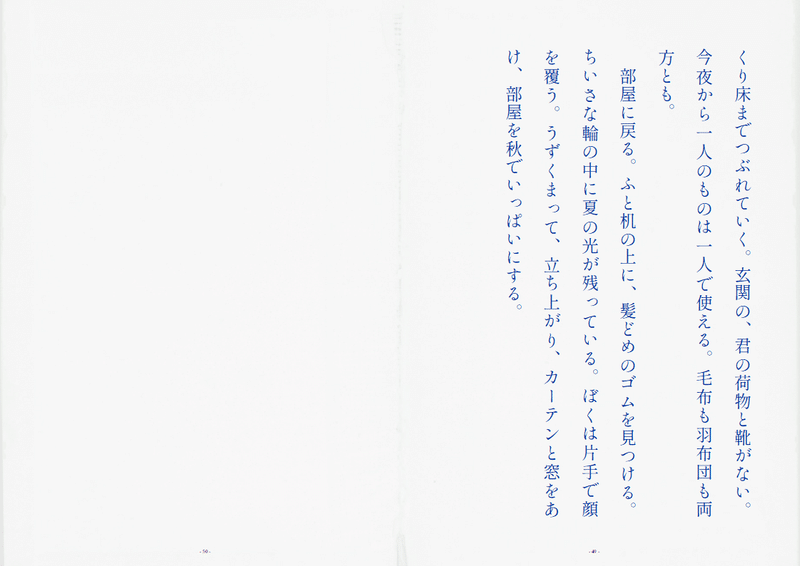 くり床までつぶれていく。玄関の、君の荷物と靴がない。
今夜から一人のものは一人で使える。毛布も羽布団も両
方とも。
部屋に戻る。ふと机の上に、髪どめのゴムを見つける。
ちいさな輪の中に夏の光が残っている。ぼくは片手で顔
を覆う。うずくまって、立ち上がり、カーテンと窓をあ
け、部屋を秋でいっぱいにする。
- 49 -
- 50 -